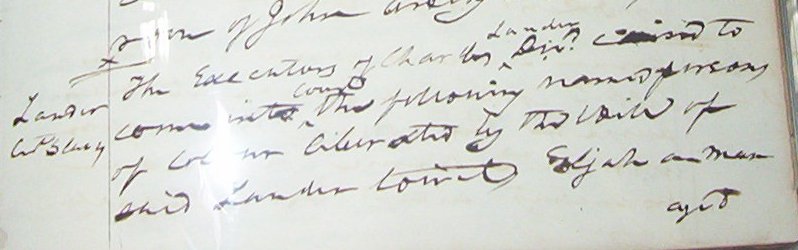 son of John
Lander
The Executors of Charles ^ Decd. caused to
Court
come into ^ the following named persons
of colour liberated by the Will of
said Lander towit, Elijah a man
aged
Lander
Slaves